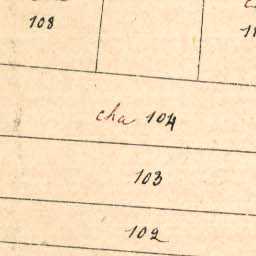 108
cha 104
103
102